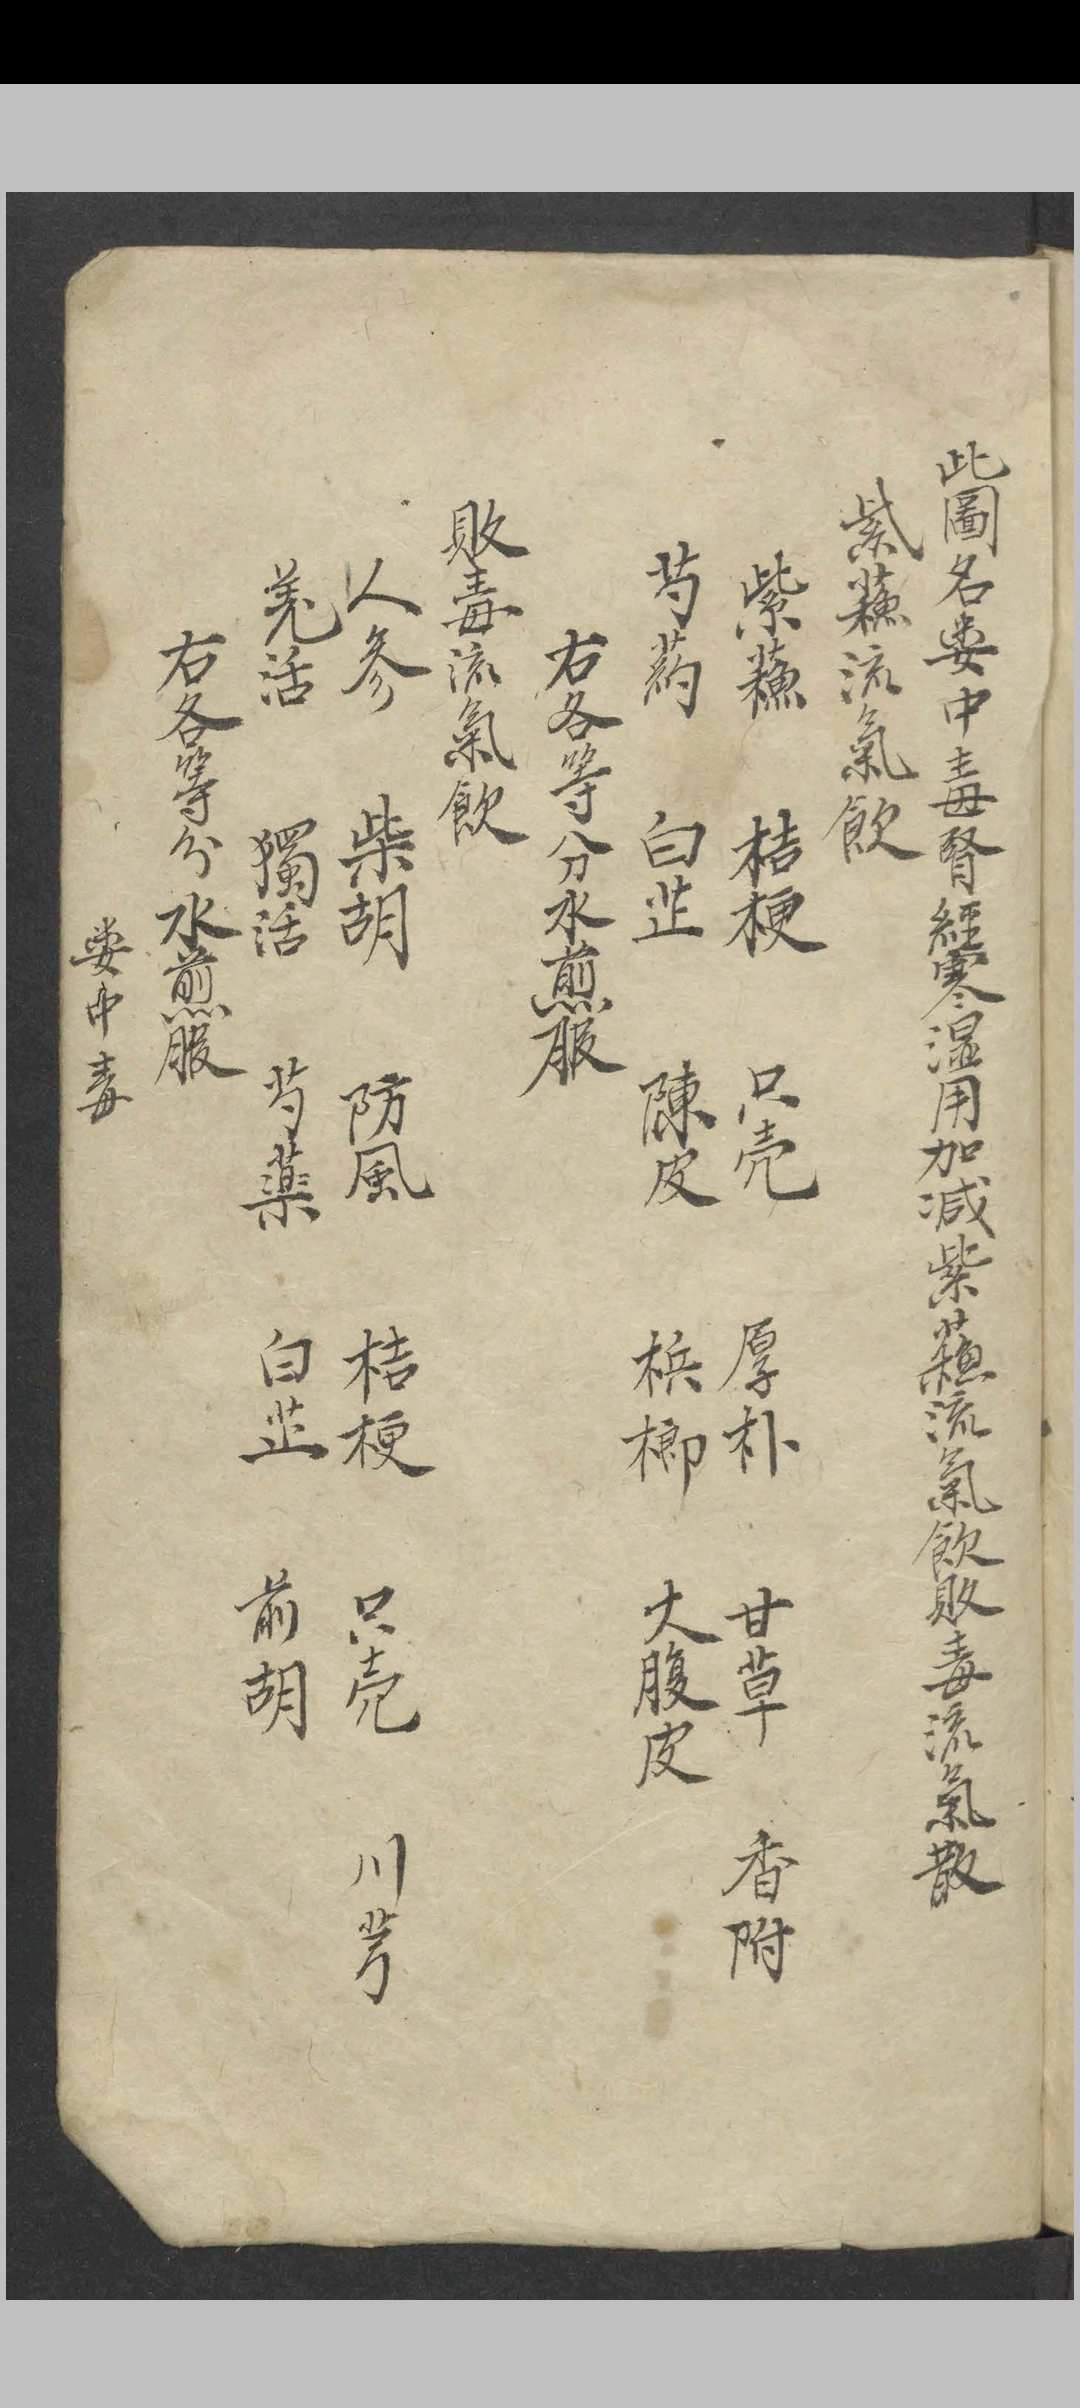 此圖名婁中毒腎經寒湿用加减紫蘓流氣飲敗毒流氣散
紫蘓流氣飲
紫蘓 桔梗 只壳 厚朴 甘草 香附
芍药 白芷 陳皮 梹榔 大腹皮
右各等分水煎服
敗毒流氣飲
人参 柴胡 防風 桔梗 只壳 川芎
羌活 獨活 芍藥 白芷 前胡
右各等分水煎服
婁中毒